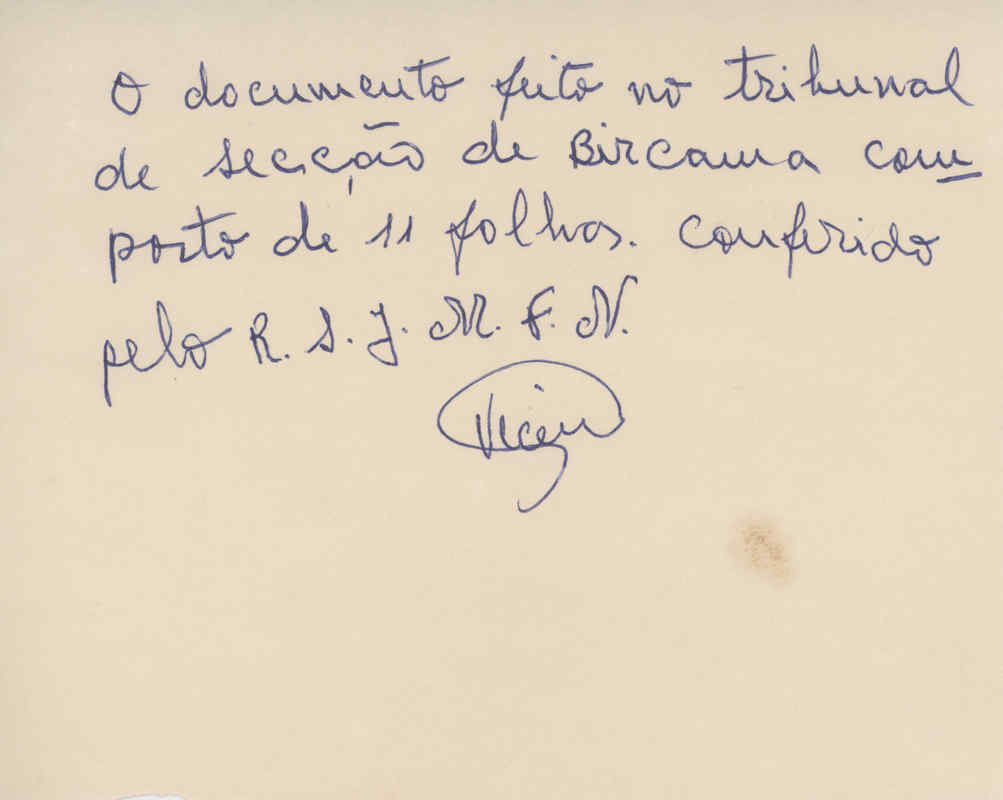 O documento feito no tribunal
de secção de Bircama com
posto de 11 folhas. Conferido
pelo R. S. J. M. F. N.